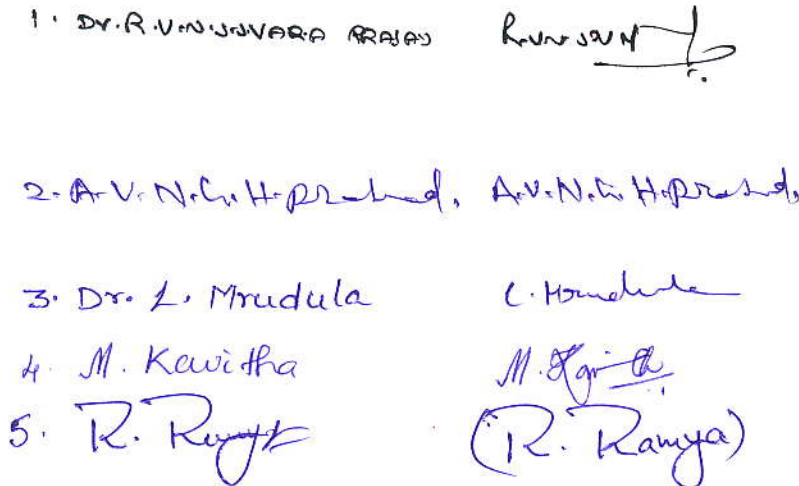 1. Dr. R.V.N. PRASAD R.V.N.
2. A.V.N.G.H. Prasad, A.V.N.G.H. Prasad,
3. Dr. L. Mrudula L. Mrudula
4. M. Kavitha M. Kavitha
5. R. Ramya (R. Ramya)